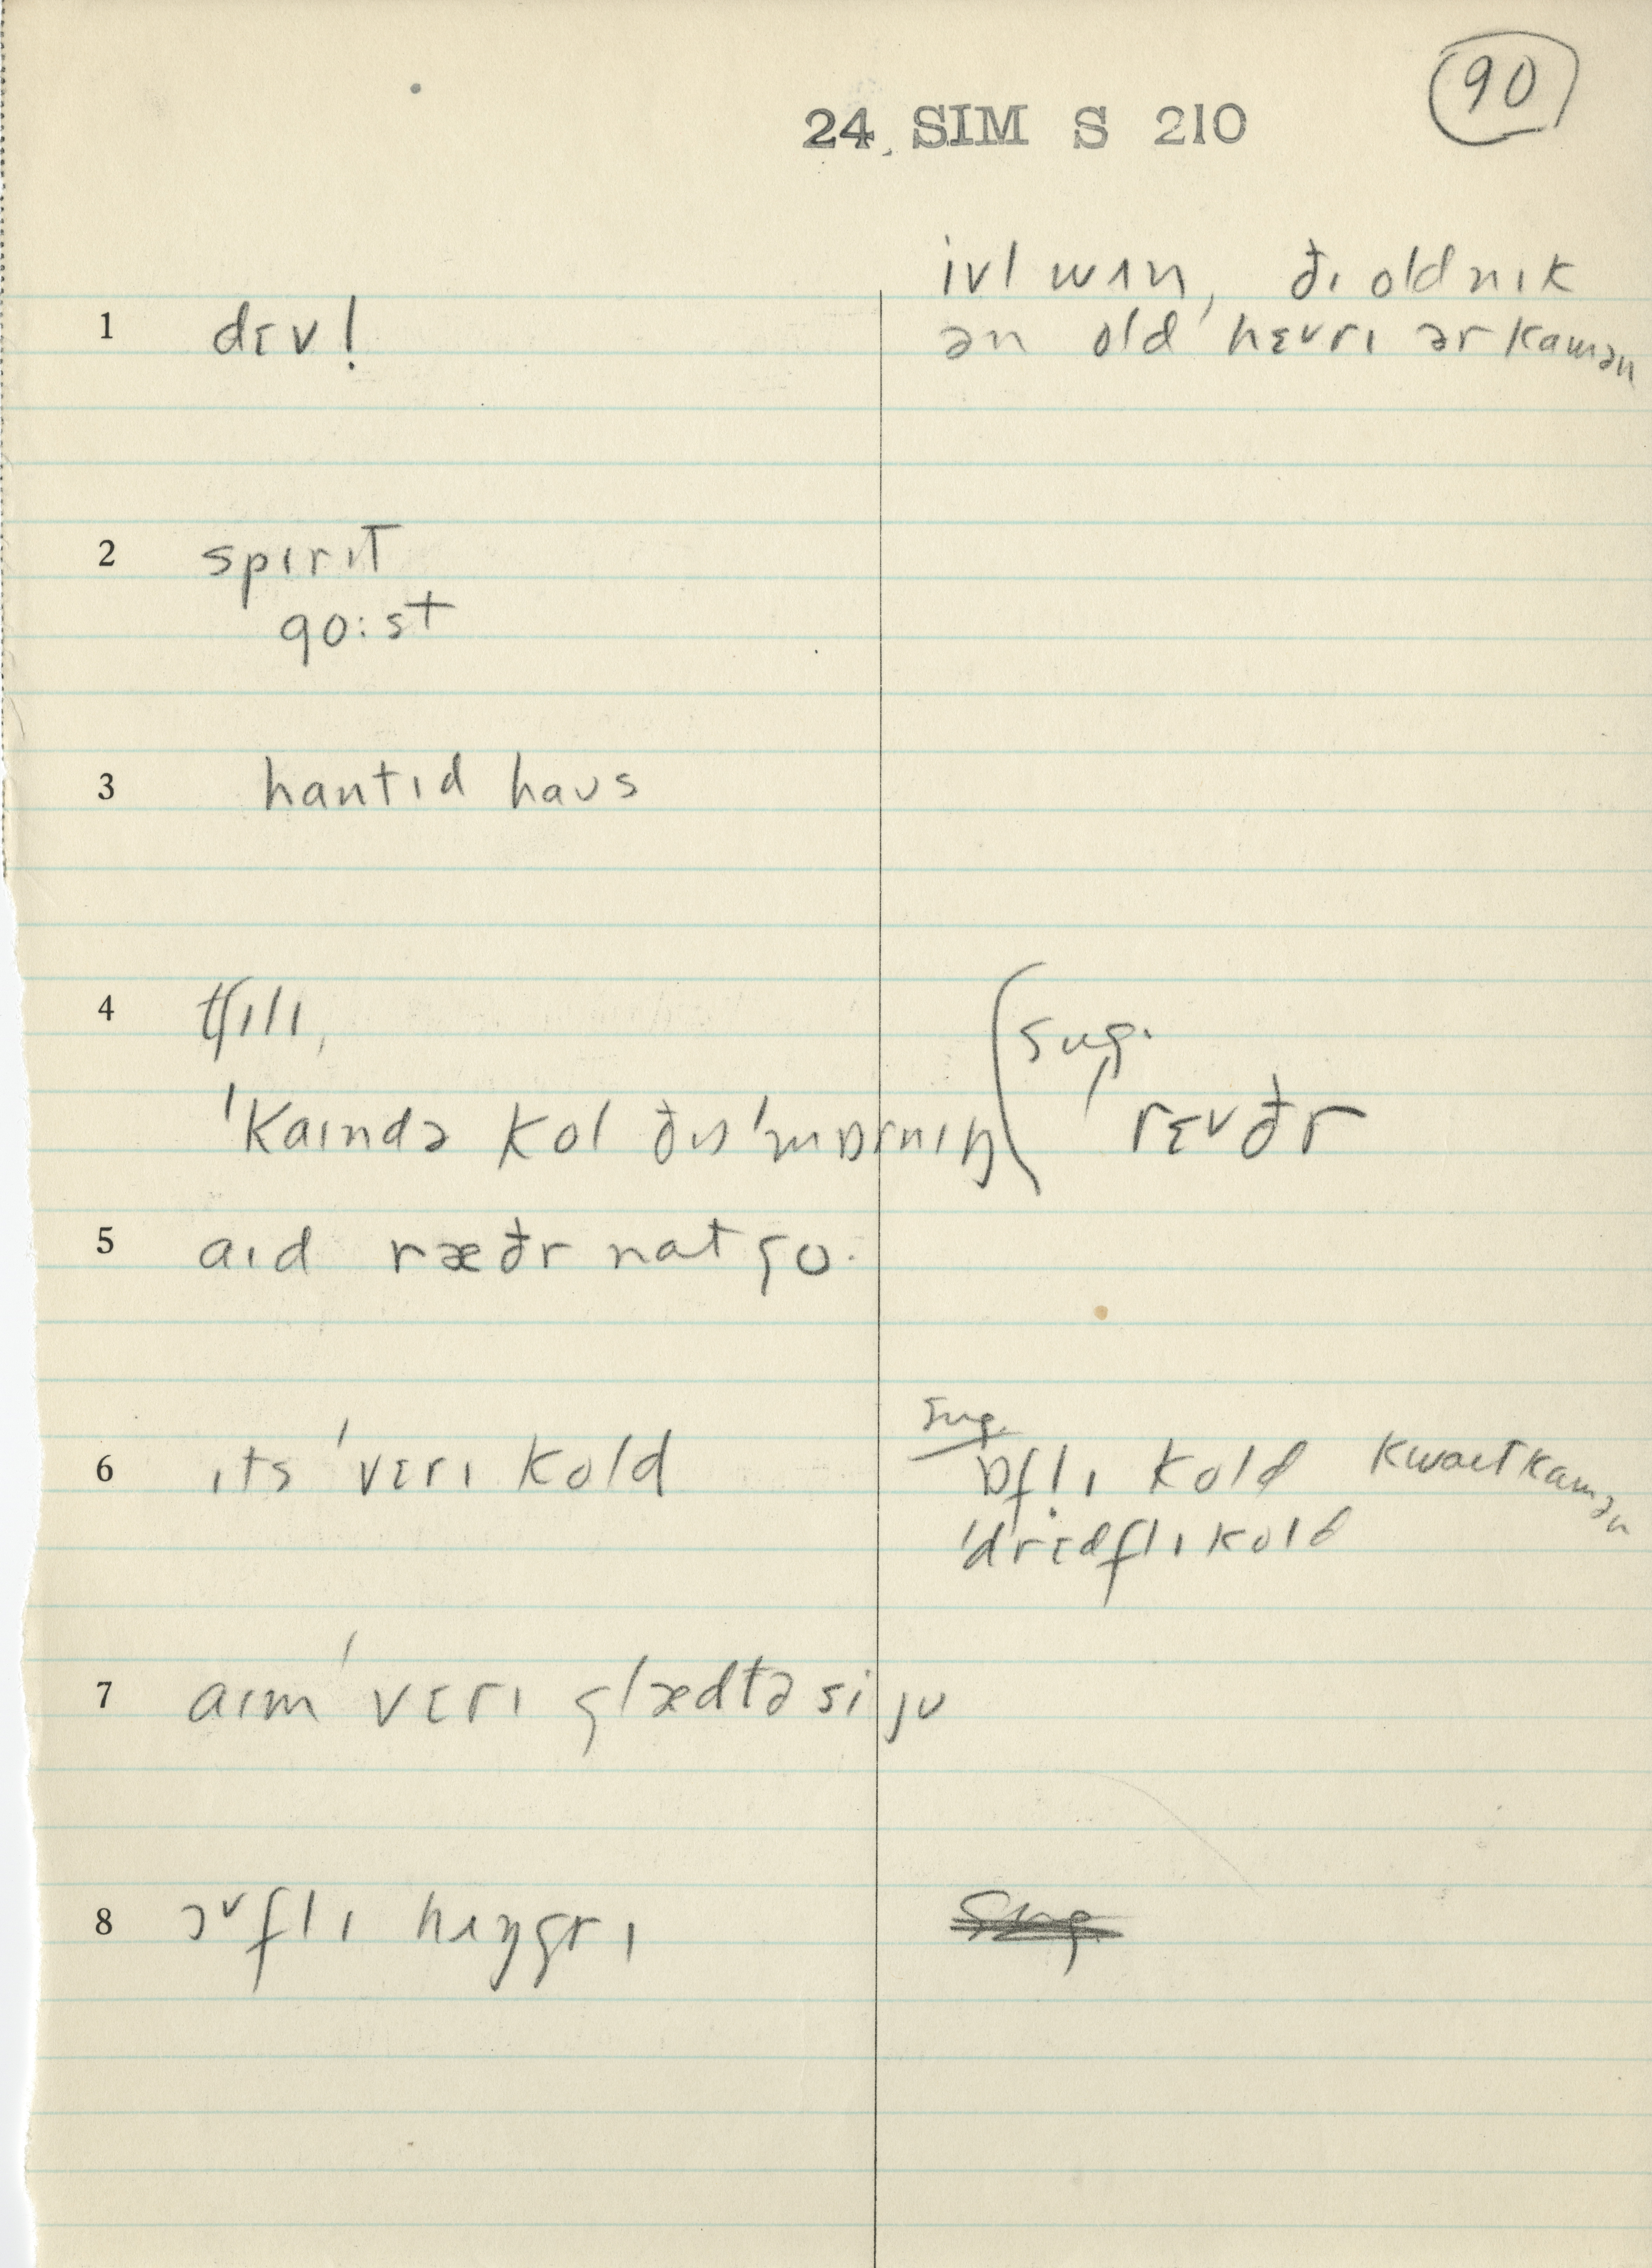 90
24 SIM S 210
ivl wʌn, ðɪ old nɪk
1 dɛv! ən old hɛvrɪ ər kamən
2 spɪrɪt
go:st
3 hantɪd haʊs
4 tʃɪlɪ, (sug.
ˈkaɪndə kol ðɪs ˈmɒrnɪŋ rɛvðr
5 aɪd ræðr nat go.
sug.
6 ɪts ˈvɛrɪ kold ɒfl̩ɪ kold kwaɪt kamən
ˈdrɛdflɪ kold
7 aɪm ˈvɛrɪ glædtə si jʊ
8 ɔᵛflɪ hʌŋgrɪ